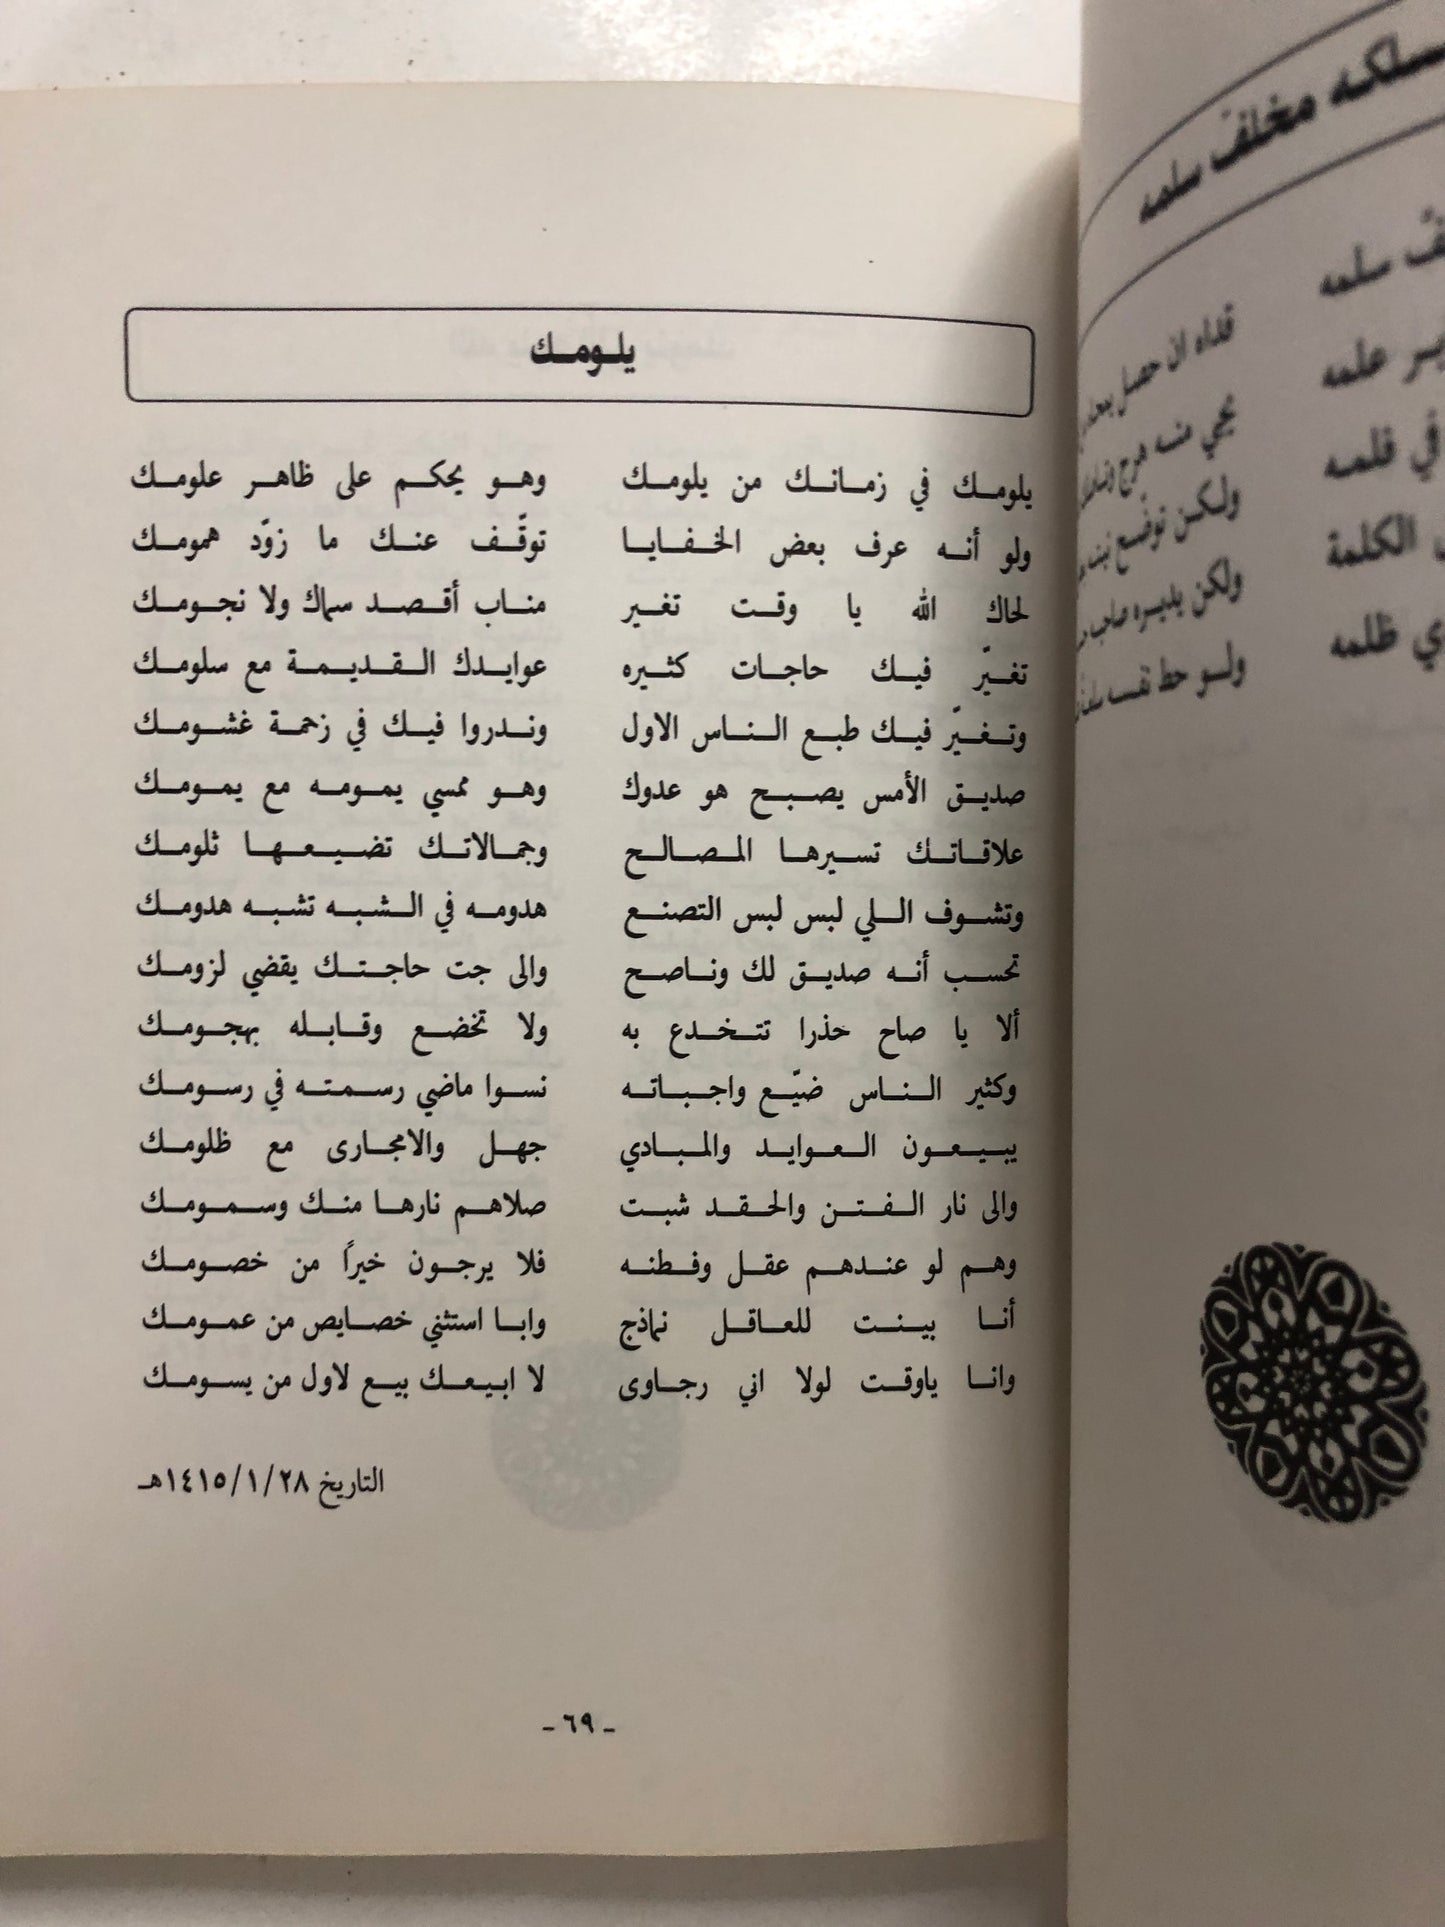 يلومك
يلومك في زمانك من يلومك وهو يحكم على ظاهر علومك
ولو أنه عرف بعض الخفايا توقّف عنك ما زوّد همومك
لحاك الله يا وقت تغير مناب أقصد سماك ولا نجومك
تغيّر فيك حاجات كثيره عوايدك القديمة مع سلومك
وتغيّر فيك طبع الناس الاول وندروا فيك في زحمة غشومك
صديق الأمس يصبح هو عدوك وهو ممسي يمومه مع يمومك
علاقاتك تسيرها المصالح وجمالاتك تضيعها ثلومك
وتشوف اللي لبس لبس التصنع هدومه في الشبه تشبه هدومك
تحسب أنه صديق لك وناصح والى جت حاجتك يقضي لزومك
ألا يا صاح حذرا تتخدع به ولا تخضع وقابله بهجومك
وكثير الناس ضيّع واجباته نسوا ماضي رسمته في رسومك
يبيعون العوايد والمبادي جهل والامجارى مع ظلومك
والى نار الفتن والحقد شبت صلاهم نارها منك وسمومك
وهم لو عندهم عقل وفطنه فلا يرجون خيراً من خصومك
أنا بينت للعاقل نماذج وابا استثني خصايص من عمومك
وانا ياوقت لولا اني رجاوى لا ابيعك بيع لاول من يسومك
التاريخ ١٤١٥/١/٢٨هـ
- ٦٩ -
مخلف سلمه
سلمه
قداه ان حصل
علمه
يجي منه هرج
في قلمه
ولكن توضّع نبت
الكلمة
ولكن يليره صاحب
ظلمه
ولو حط نفسه